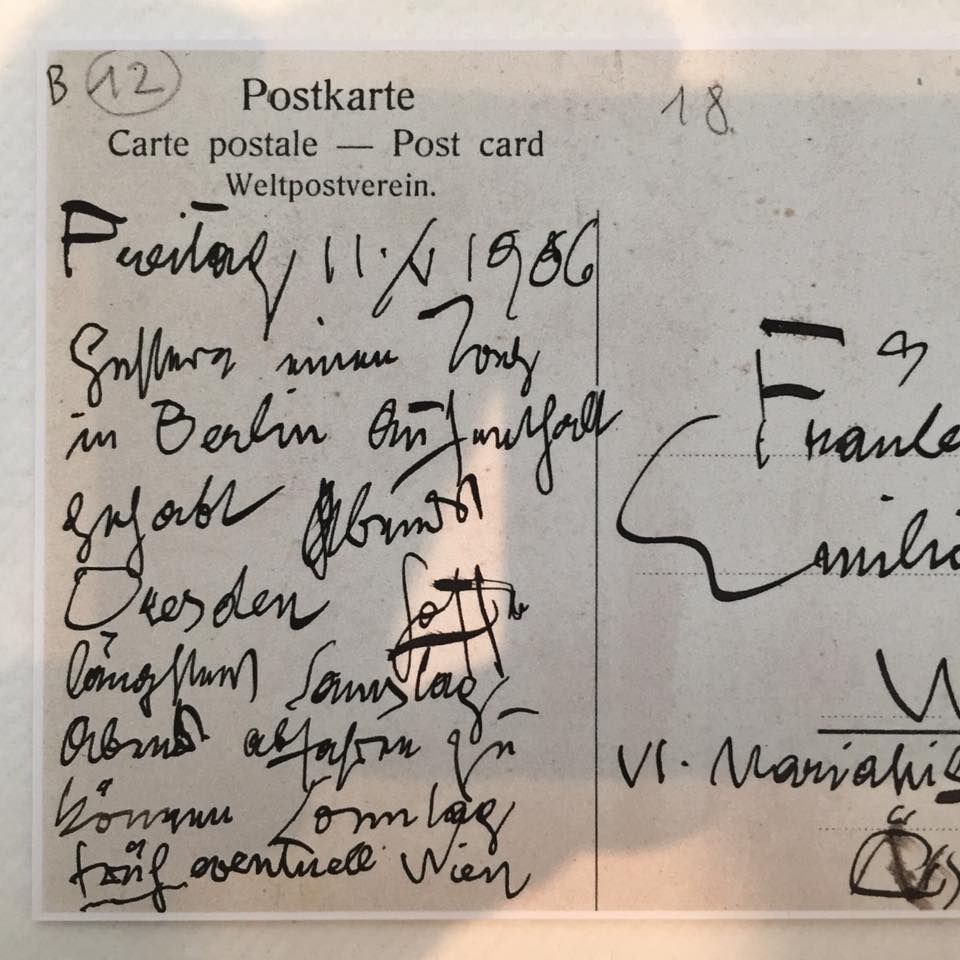 B 12
Postkarte
18.
Carte postale — Post card
Weltpostverein.
Freitag, 11. V 1906
Gestern einen Tag
in Berlin Aufenthalt
gehabt Abends
Dresden hoffe
längstens Samstag
Abends abfahren zu
können Sonntag
früh eventuell Wien
Fräule
Emilie
W
VI. Mariahi